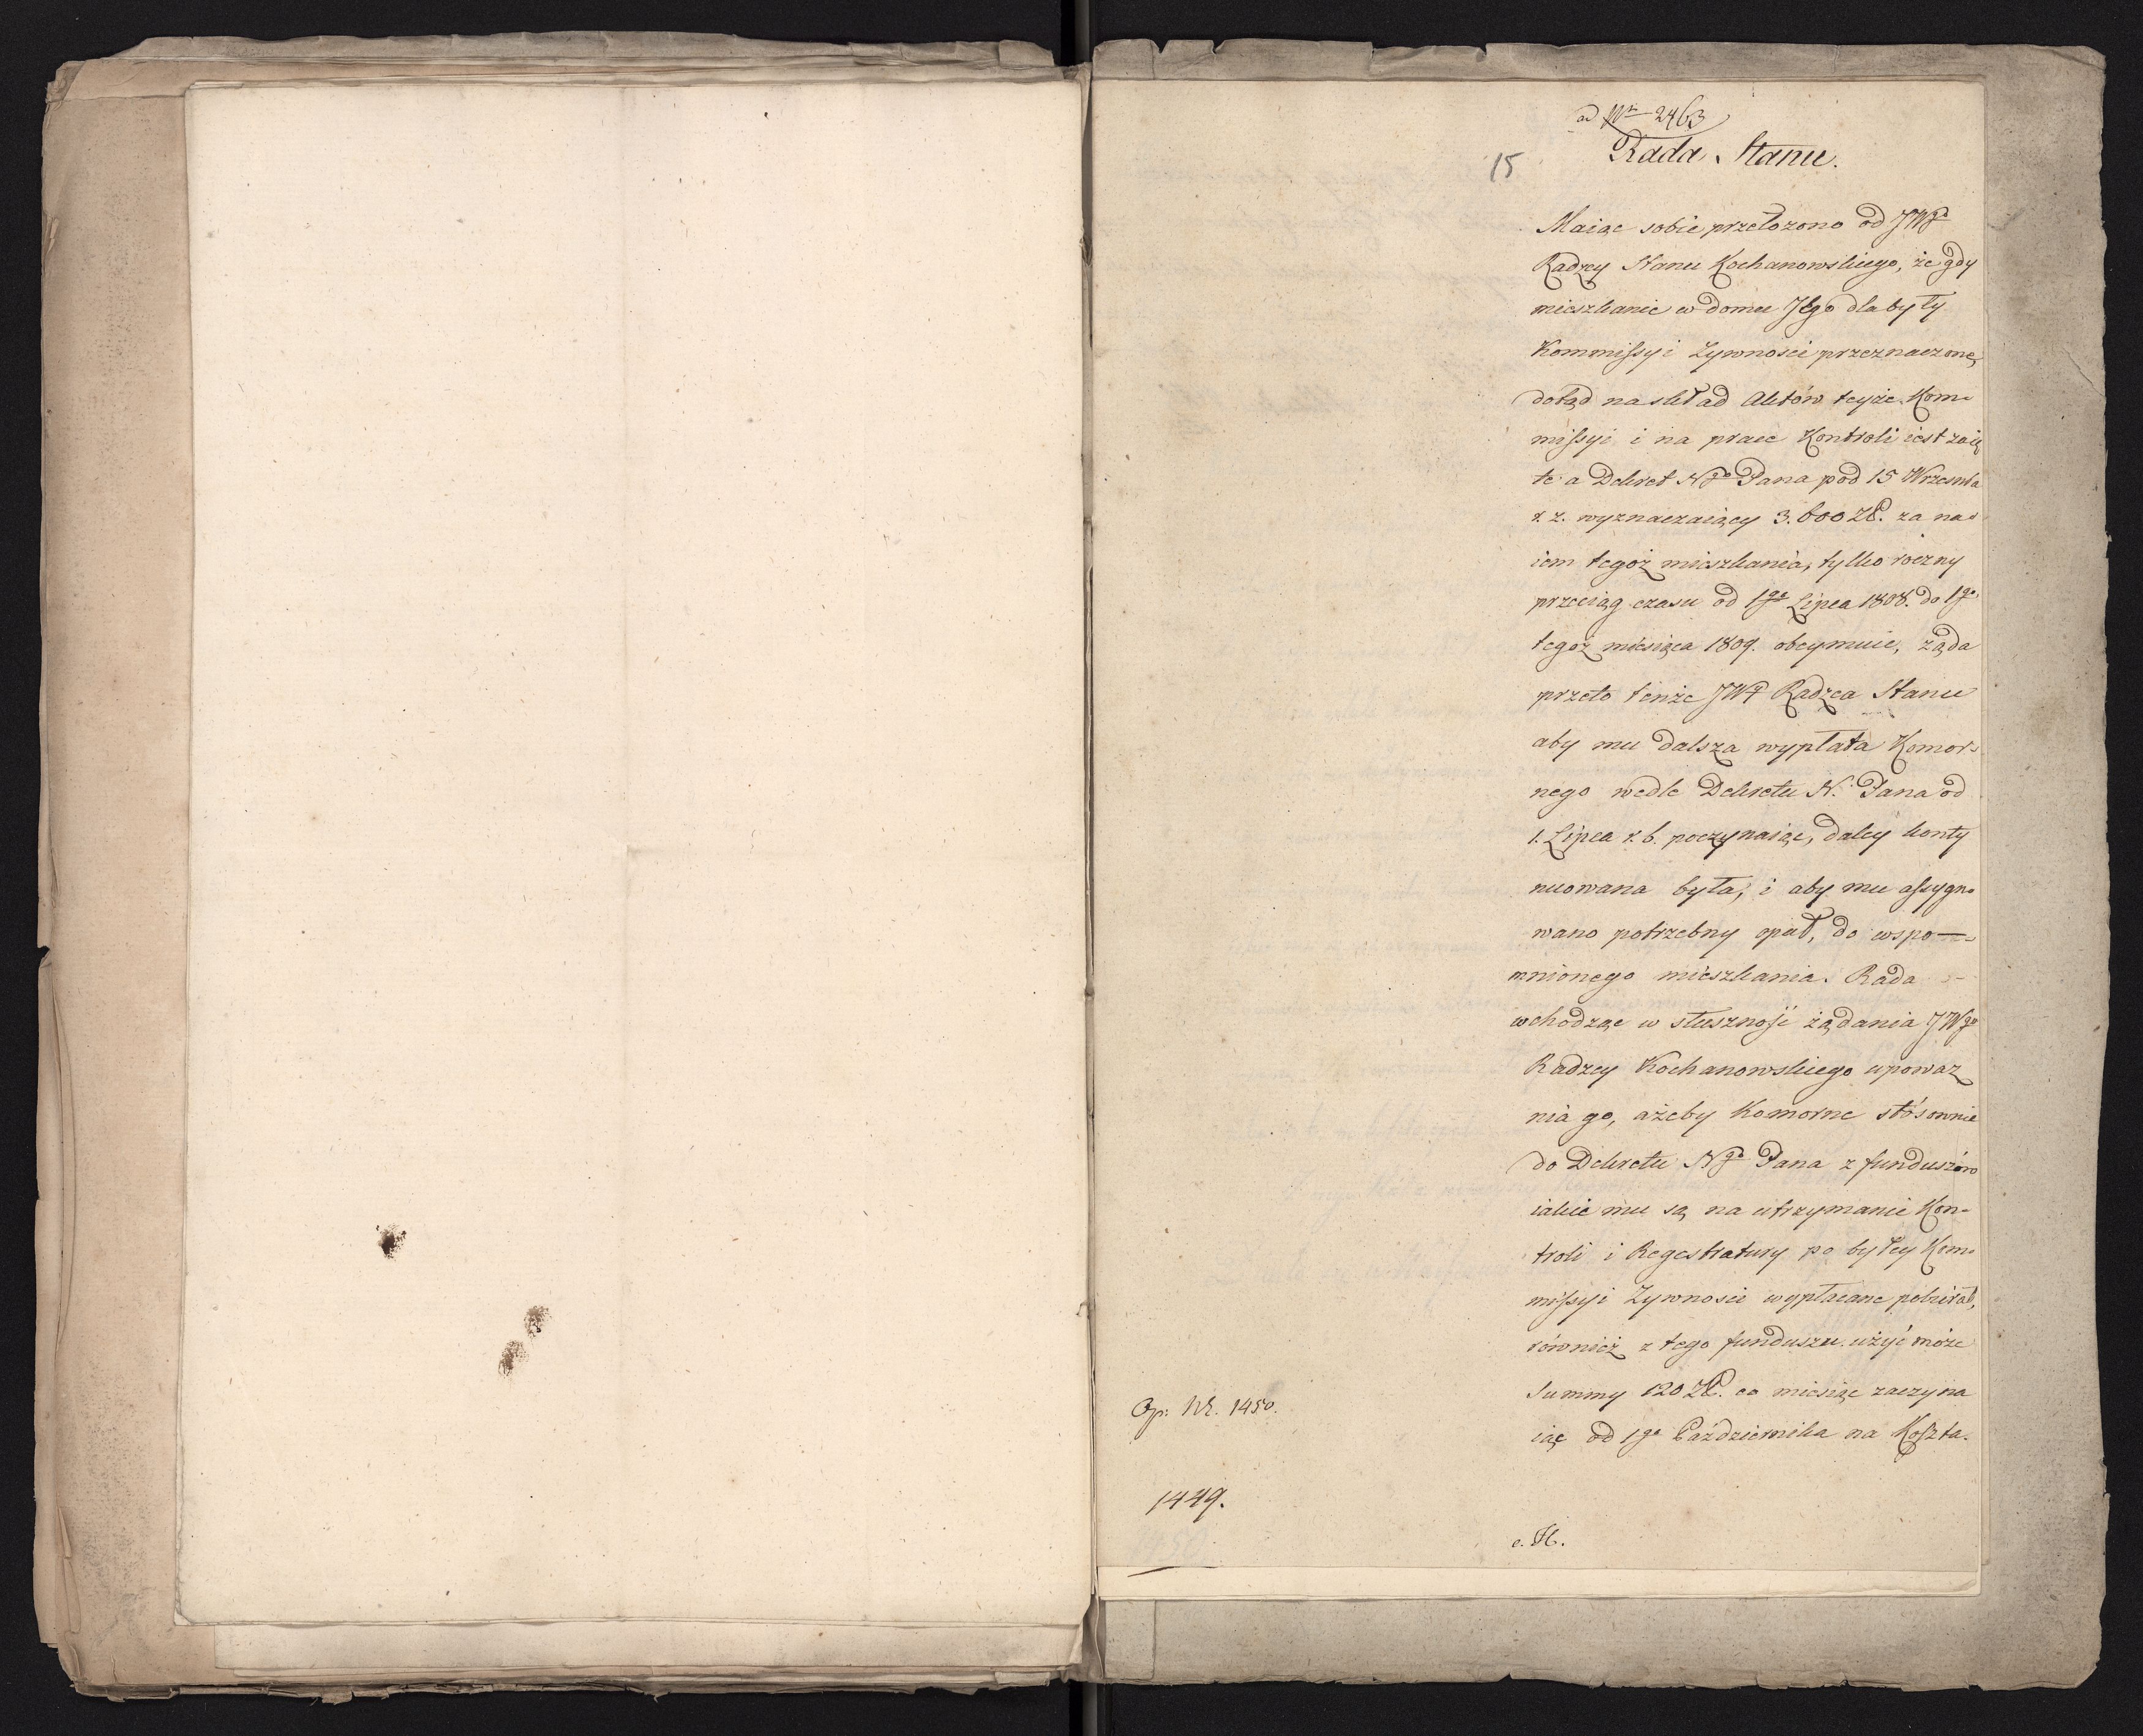 ad Nr 2463
15
Rada Stanu.
Maiąc sobie przełozono od JWgo
Radzcy Stanu Kochanowskiego, że gdy
mieszkanie w domu JEgo dla były
Kommissyi Zywnosci przeznaczone,
dotąd na skład Aktów teyże Kom-
missyi i na prace Kontroli iest zaię
te a Dekret Ngo Pana pod 15 Wrzesnia
r. z. wyznaczaiący 3.600 Zł. za na-
iem tegoż mieszkania, tylko roczny
przeciąg czasu od 1go Lipca 1808. do 1go
tegoż miesiąca 1809. obeymuie, żąda
przeto tenże JW Radzca Stanu
aby mu dalsza wypłata Komor-
nego wedle Dekretu N. Pana od
1. Lipca r. b. poczynaiąc, daley konty
nuowana była, i aby mu assygno
wano potrzebny opał, do wspo-
mnionego mieszkania. Rada
wchodząc w słuszność żądania JWgo
Radzcy Kochanowskiego upoważ
nia go, ażeby Komorne stósownie
do Dekretu Ngo Pana z funduszów
iakie mu są na utrzymanie Kon-
troli i Regestratury po byłey Kom-
missyi Zywnosci wypłacane pobierał,
również z tego funduszu użyć może
Summy 120 Zł. co miesiąc zaczyna
iąc od 1go Października na Koszta.
Op: Nr. 1450.
1449.
e. H.